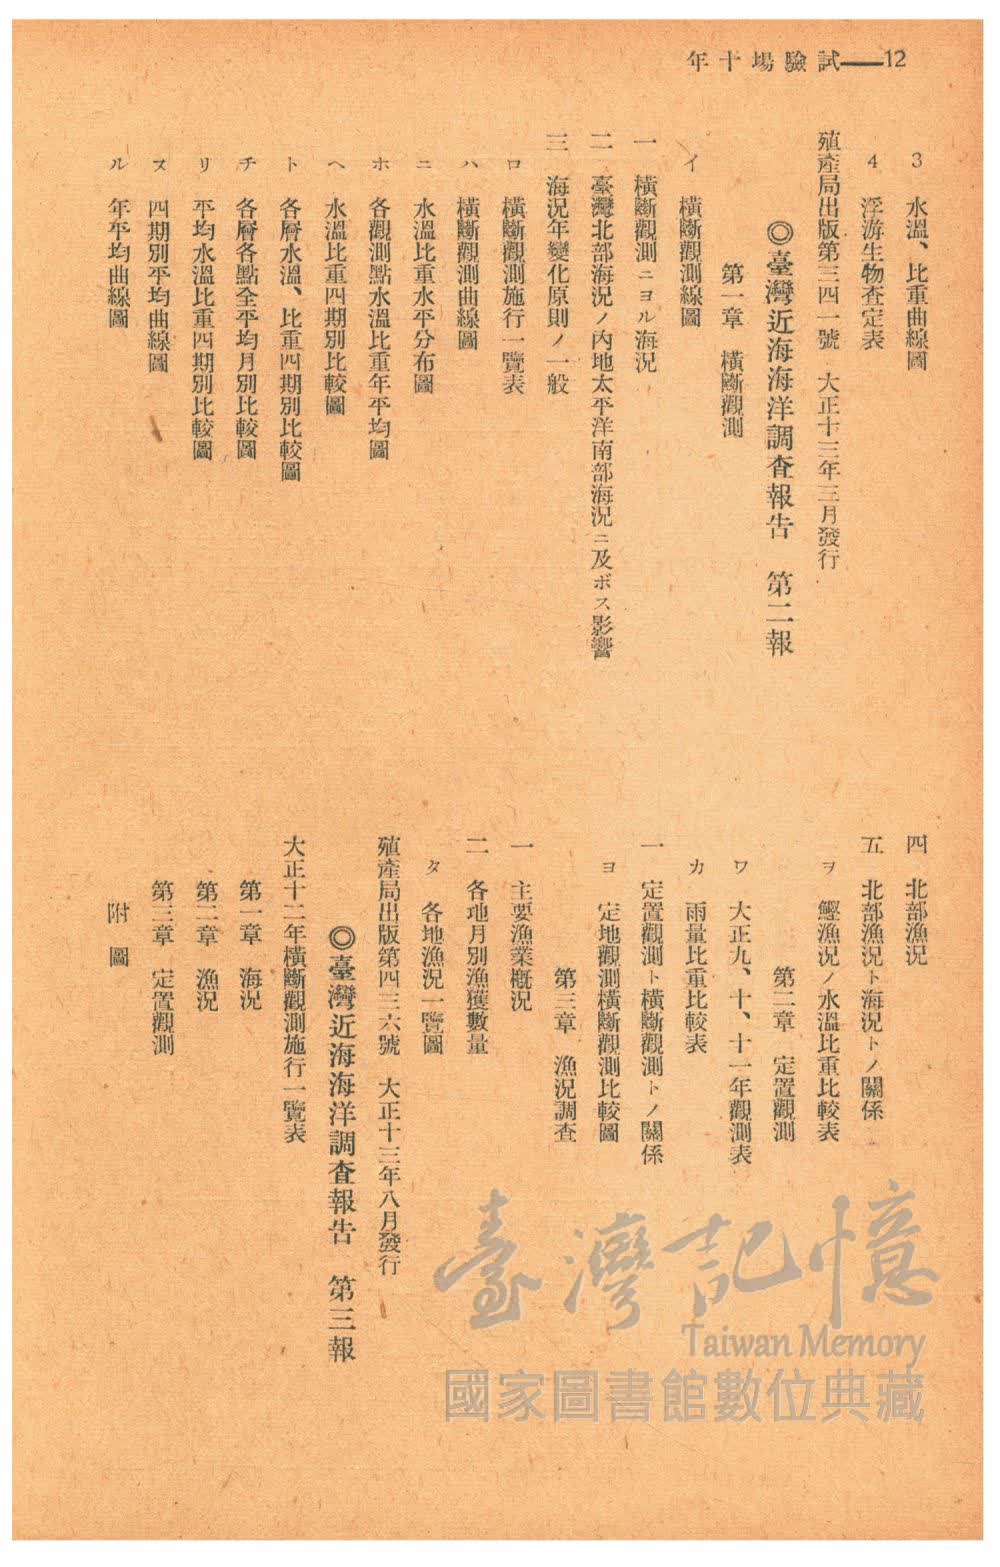 年十場驗試——12
3 水溫、比重曲線圖
4 浮游生物査定表
殖產局出版第三四一號 大正十三年三月發行
◎臺灣近海海洋調査報告 第二報
第一章 橫斷觀測
イ 橫斷觀測線圖
一 橫斷觀測ニヨル海況
二 臺灣北部海況ノ內地太平洋南部海況ニ及ボス影響
三 海況年變化原則ノ一般
ロ 橫斷觀測施行一覽表
ハ 橫斷觀測曲線圖
ニ 水溫比重水平分布圖
ホ 各觀測點水溫比重年平均圖
ヘ 水溫比重四期別比較圖
ト 各層水溫、比重四期別比較圖
チ 各層各點全平均月別比較圖
リ 平均水溫比重四期別比較圖
ヌ 四期別平均曲線圖
ル 年平均曲線圖
四 北部漁況
五 北部漁況ト海況トノ關係
ヲ 鰹漁況ノ水溫比重比較表
第二章 定置觀測
ワ 大正九、十、十一年觀測表
カ 雨量比重比較表
一 定置觀測ト橫斷觀測トノ關係
ヨ 定地觀測橫斷觀測比較圖
第三章 漁況調査
一 主要漁業槪況
二 各地月別漁獲數量
タ 各地漁況一覽圖
殖產局出版第四三六號 大正十三年八月發行
◎臺灣近海海洋調査報告 第三報
大正十二年橫斷觀測施行一覽表
第一章 海況
第二章 漁況
第三章 定置觀測
附圖
臺灣記憶
Taiwan Memory
國家圖書館數位典藏